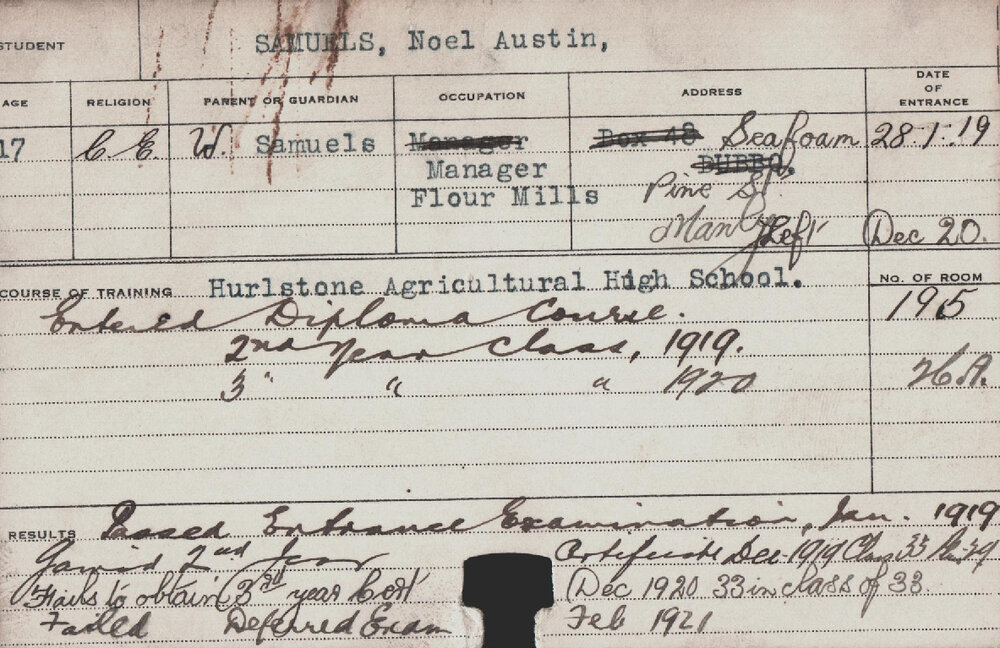 STUDENT SAMUELS, Noel Austin,
AGE RELIGION PARENT OR GUARDIAN OCCUPATION ADDRESS DATE OF ENTRANCE
17 C E. W. Samuels Manager Box 48 Seafoam 28.1.19
Manager DUBBO.
Flour Mills Pine St.
Manly Left Dec 20.
COURSE OF TRAINING Hurlstone Agricultural High School. NO. OF ROOM
Entered Diploma Course. 195
2nd Year Class, 1919.
3" " " 1920 26A.
RESULTS Passed Entrance Examination, Jan. 1919
Gained 2nd Year Certificate Dec 1919 Class 33
Fails to obtain (3rd year Cert (Dec 1920 33 in class of 33.
Failed Deferred Exam Feb 1921